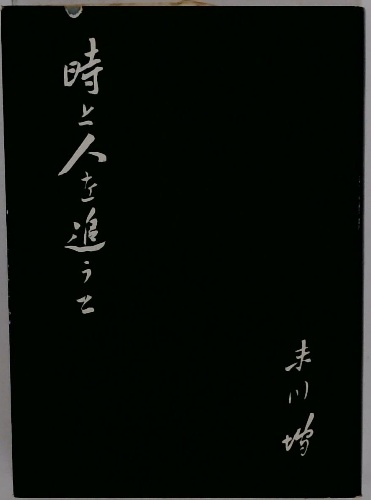 時と人を追うて
末川博